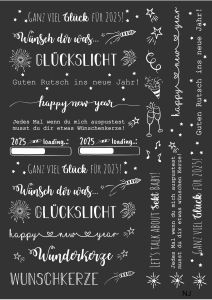 GANZ VIEL Glück FÜR 2025!
Wünsch dir was...
GLÜCKSLICHT
Guten Rutsch ins neue Jahr!
happy new year
Jedes Mal wenn du mich auspustest
musst du dir etwas Wünschenkerze!
2025 ...loading...
2025 ...loading...
GANZ VIEL Glück FÜR 2025!
Wünsch dir was...
GLÜCKSLICHT
happy new year
Wunderkerze
WUNSCHKERZE
happy new year
LET'S TALK ABOUT Sekt BABY!
Jedes Mal wenn du mich auspustest
musst du dir etwas Wünschenkerze!
happy new year
GANZ VIEL Glück FÜR 2025!
NJ